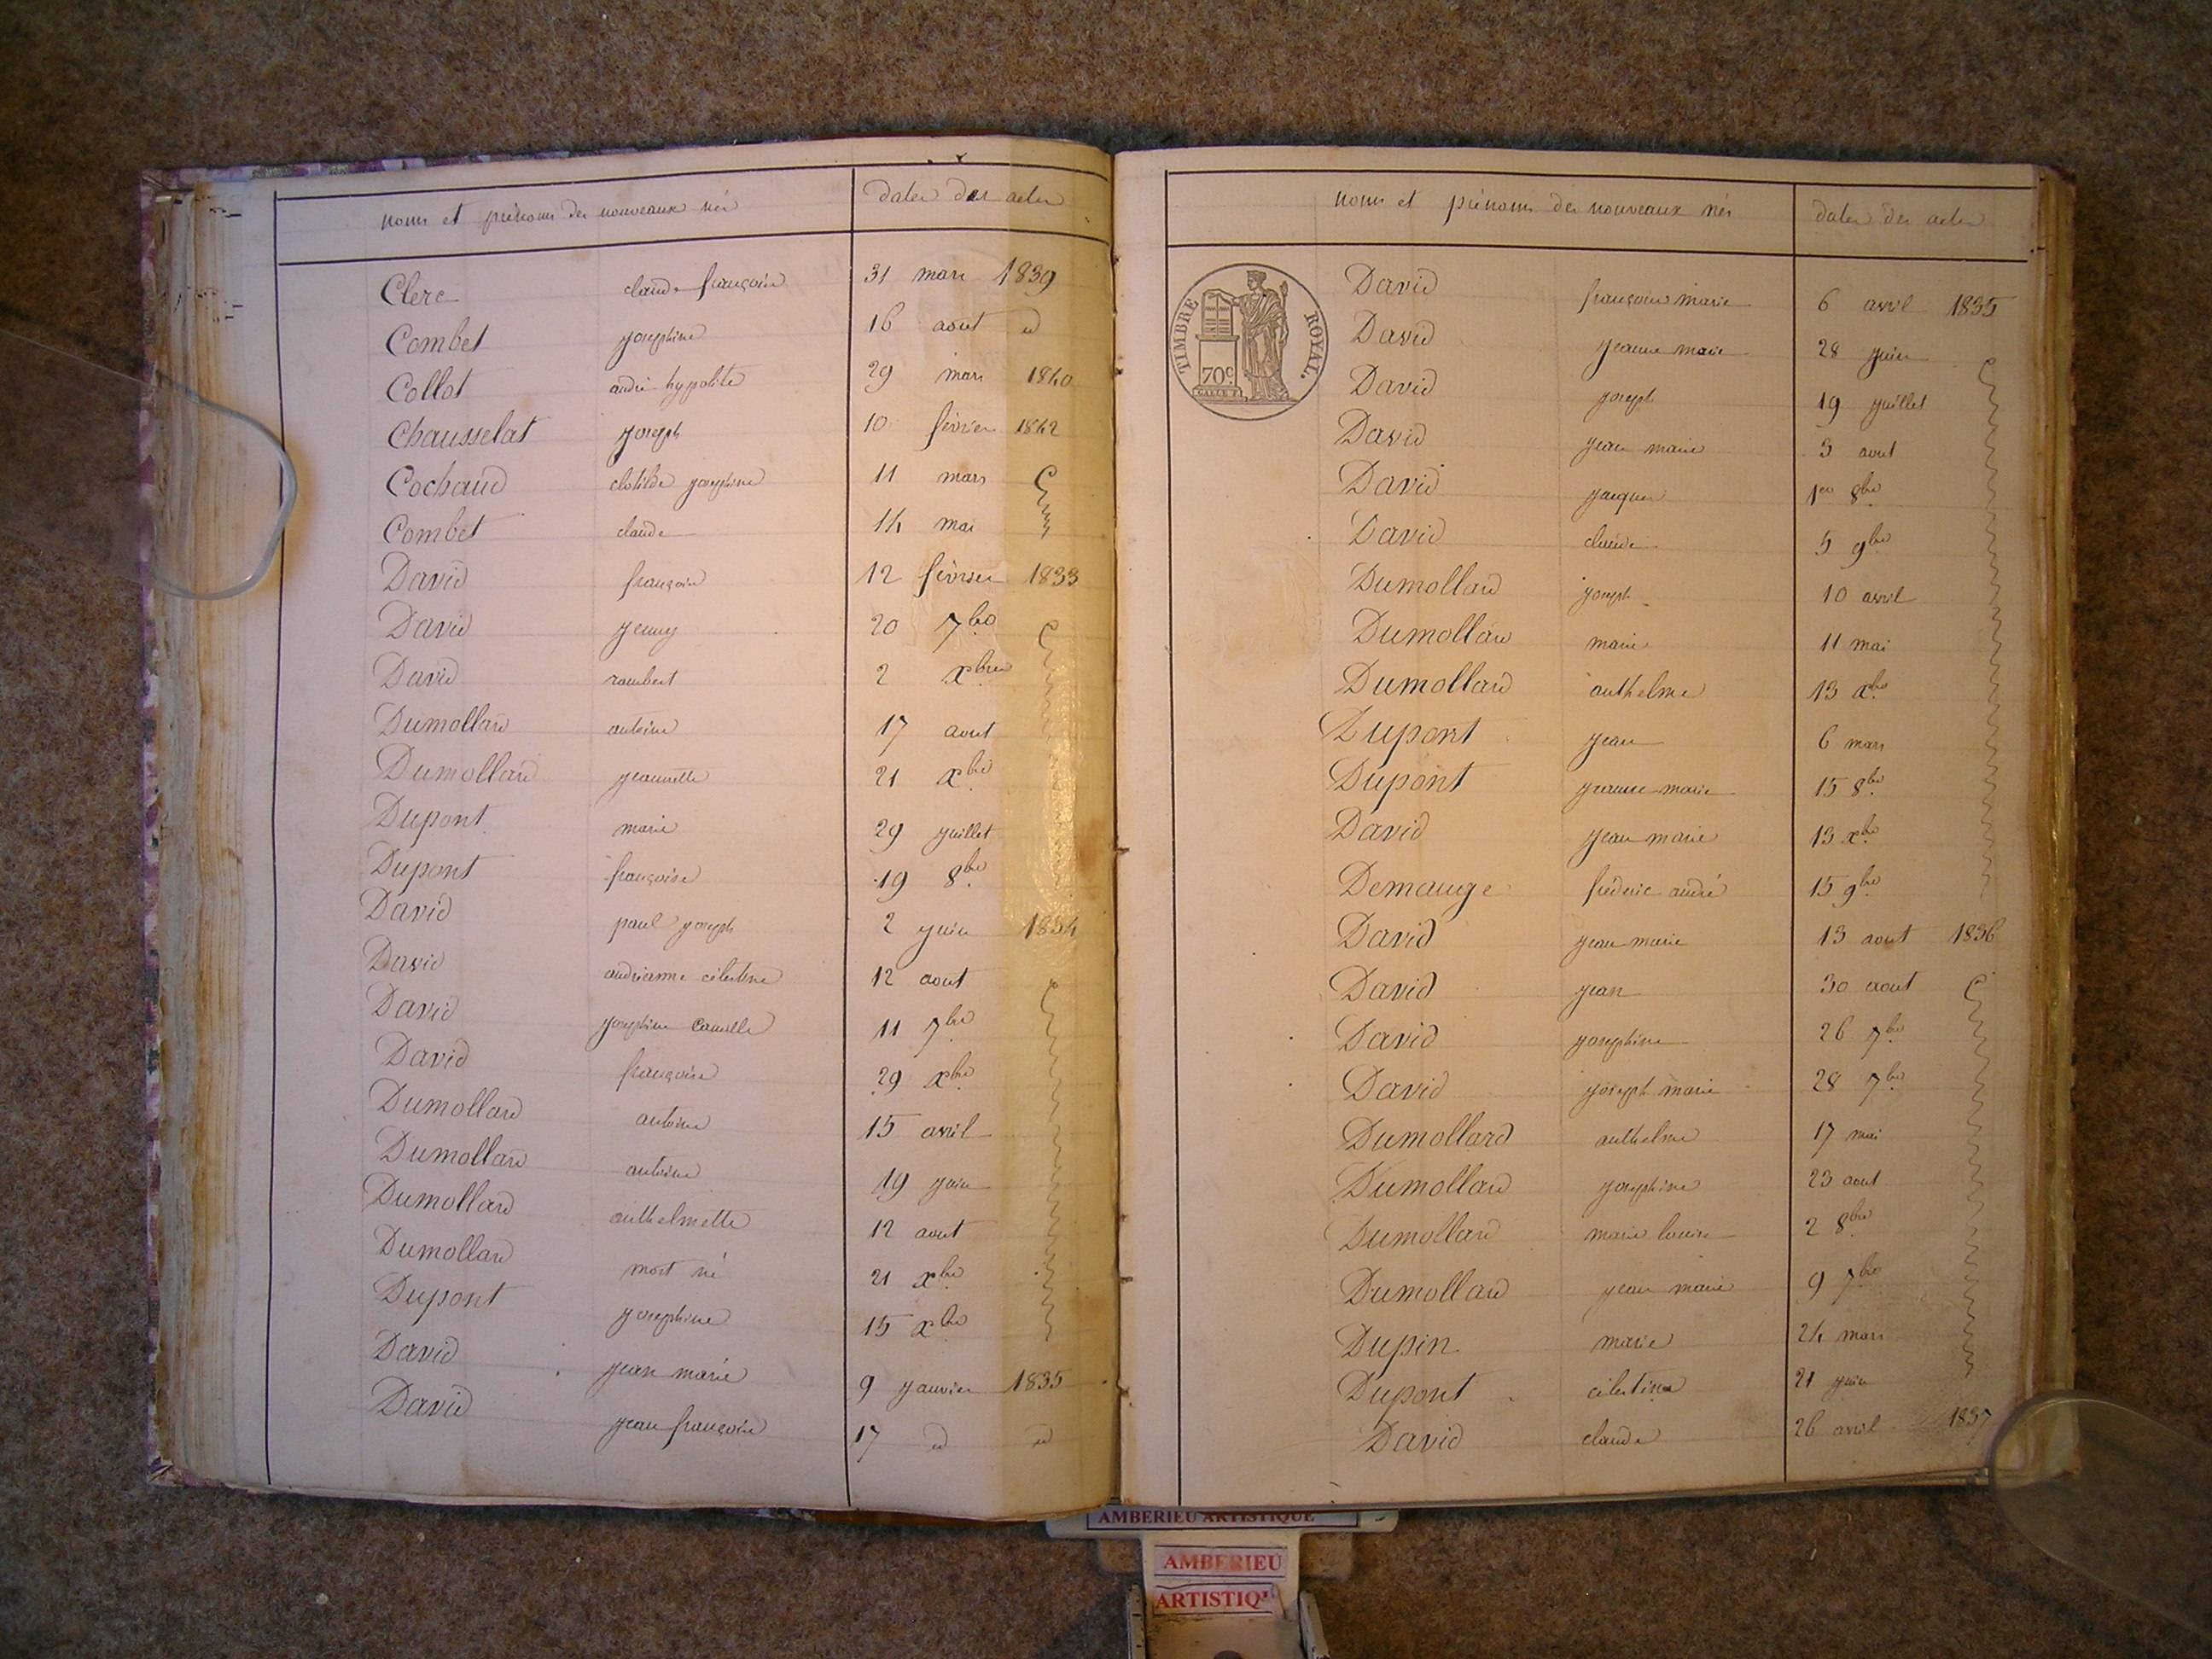 noms et prénoms des nouveaux nés dates des actes
Clerc claude françois 31 mars 1839
Combet josephine 16 aout id
Collot andré hypolite 29 mars 1840
Chausselat joseph 10 février 1842
Cochaud clotilde josephine 11 mars
Combet claude 14 mai
David françois 12 février 1833
David jenny 20 7bre
David rambert 2 xbre
Dumollard antoine 17 aout
Dumollard jeannette 21 xbre
Dupont marie 29 juillet
Dupont françoise 19 8bre
David paul joseph 2 juin 1834
David andrianne célestine 12 aout
David josephine camille 11 7bre
David françoise 29 xbre
Dumollard antoine 15 avril
Dumollard antoine 19 juin
Dumollard anthelmette 12 aout
Dumollard mort né 21 xbre
Dupont josephine 15 xbre
David jean marie 9 janvier 1835
David jean françois 17 id id
noms et prénoms des nouveaux nés dates des actes
TIMBRE ROYAL.
70c.
David françoise marie 6 avril 1835
David jeanne marie 28 juin
David joseph 19 juillet
David jean marie 3 aout
David jacques 1er 8bre
David claude 5 9bre
Dumollard joseph 10 avril
Dumollard marie 11 mai
Dumollard anthelme 13 xbre
Dupont jean 6 mars
Dupont jeanne marie 15 8bre
David jean marie 13 xbre
Demange fréderic andré 15 9bre
David jean marie 13 aout 1836
David jean 30 aout
David josephine 26 7bre
David joseph marie 28 7bre
Dumollard anthelme 17 mai
Dumollard josephine 23 aout
Dumollard marie louise 2 8bre
Dumollard jean marie 9 7bre
Dupin marie 24 mars
Dupont célestine 21 juin
David claude 26 avril 1837
AMBERIEU ARTISTIQUE
AMBERIEU
ARTISTIQU